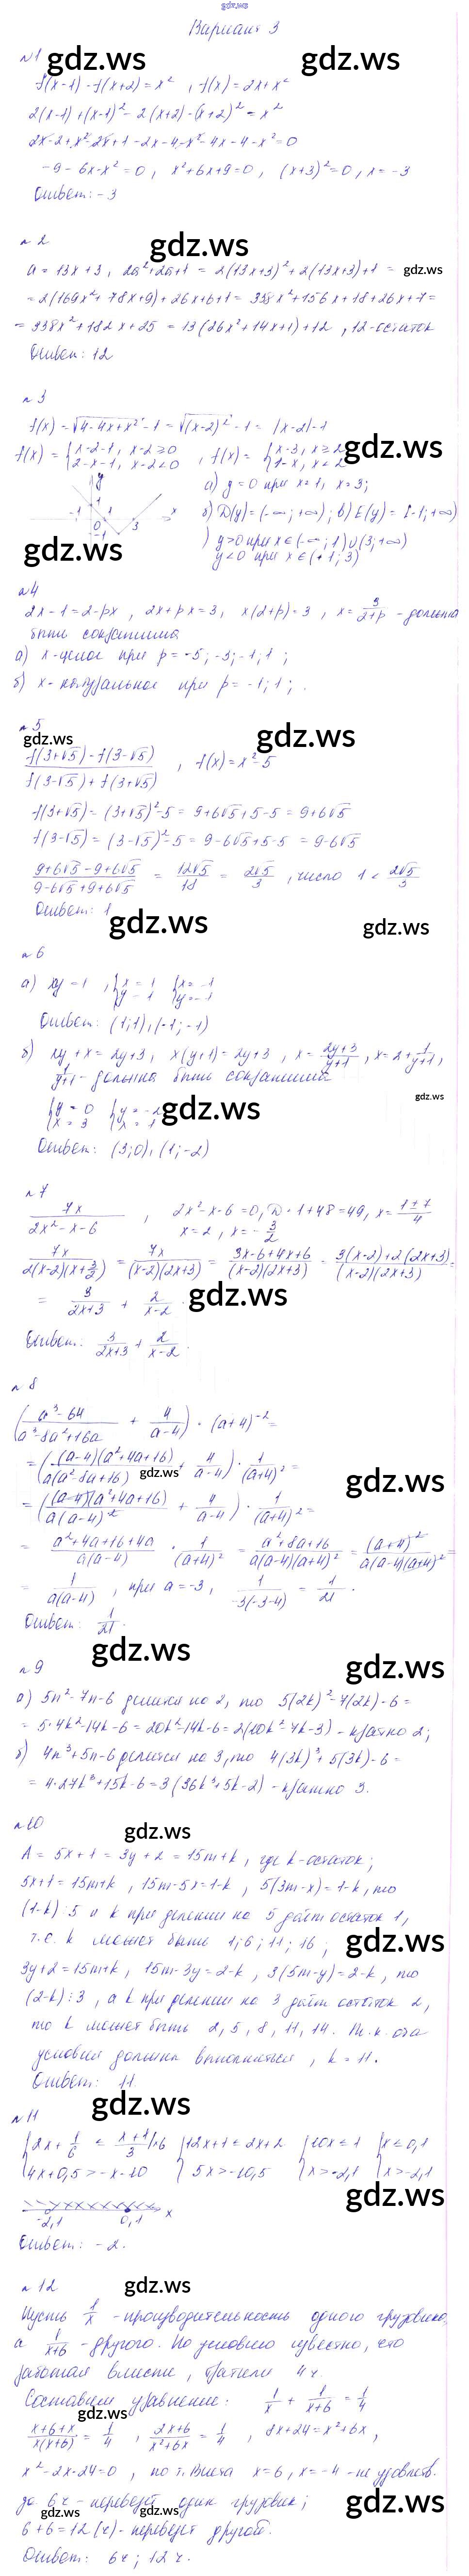 gdz.ws
Вариант 3
№1
gdz.ws gdz.ws
f(x-1) - f(x+2) = x² , f(x) = 2x + x²
2(x-1) + (x-1)² - 2(x+2) - (x+2)² = x²
2x - 2 + x² - 2x + 1 - 2x - 4 - x² - 4x - 4 - x² = 0
-9 - 6x - x² = 0 , x² + 6x + 9 = 0 , (x+3)² = 0 , x = -3
Ответ: -3
№2
gdz.ws
a = 13x + 3 , 2a² + 2a + 1 = 2(13x+3)² + 2(13x+3) + 1 =
gdz.ws
= 2(169x² + 78x + 9) + 26x + 6 + 1 = 338x² + 156x + 18 + 26x + 7 =
= 338x² + 182x + 25 = 13(26x² + 14x + 1) + 12 , 12 - остаток
Ответ: 12
№3
f(x) = √(4 - 4x + x²) - 1 = √((x-2)²) - 1 = |x-2| - 1
f(x) = { x-2-1, x-2≥0 ; 2-x-1, x-2<0 , f(x) = { x-3, x≥2 ; 1-x, x<2
gdz.ws
а) y = 0 при x = 1, x = 3;
б) D(y) = (-∞; +∞); в) E(y) = [-1; +∞)
) y>0 при x ∈ (-∞; 1) ∪ (3; +∞)
y<0 при x ∈ (1; 3)
y
-1 1 0 1 -1 3 x
gdz.ws
№4
2x - 1 = 2 - px , 2x + px = 3 , x(2+p) = 3 , x = 3/(2+p) - должна
быть сократима
а) x - целое при p = -5; -3; -1; 1 ;
б) x - натуральное при p = -1; 1 ; .
№5
gdz.ws gdz.ws
(f(3+√5) - f(3-√5))/(f(3-√5) + f(3+√5)) , f(x) = x² - 5
f(3+√5) = (3+√5)² - 5 = 9 + 6√5 + 5 - 5 = 9 + 6√5
f(3-√5) = (3-√5)² - 5 = 9 - 6√5 + 5 - 5 = 9 - 6√5
(9+6√5-9+6√5)/(9-6√5+9+6√5) = 12√5/18 = 2√5/3 , число 1 < 2√5/3
Ответ: 1
gdz.ws gdz.ws
№6
а) xy = 1 , { x = 1 ; y = 1 { x = -1 ; y = -1
Ответ: (1; 1), (-1; -1)
б) xy + x = 2y + 3 , x(y+1) = 2y + 3 , x = (2y+3)/(y+1) , x = 2 + 1/(y+1) ,
1/(y+1) - должна быть сократимой
gdz.ws
{ y = 0 ; x = 3 { y = -2 ; x = 1
gdz.ws
Ответ: (3; 0), (1; -2)
№7
7x/(2x²-x-6) , 2x² - x - 6 = 0, D = 1 + 48 = 49, x = (1±7)/4
x = 2 , x = -3/2
7x/(2(x-2)(x+3/2)) = 7x/((x-2)(2x+3)) = (3x-6+4x+6)/((x-2)(2x+3)) = (3(x-2)+2(2x+3))/((x-2)(2x+3)) =
= 3/(2x+3) + 2/(x-2) .
gdz.ws
Ответ: 3/(2x+3) + 2/(x-2) .
№8
((a³-64)/(a³-8a²+16a) + 4/(a-4)) · (a+4)⁻² =
= ((a-4)(a²+4a+16)/(a(a²-8a+16)) + 4/(a-4)) · 1/(a+4)² =
gdz.ws gdz.ws
= ((a-4)(a²+4a+16)/(a(a-4)²) + 4/(a-4)) · 1/(a+4)² =
= (a²+4a+16+4a)/(a(a-4)) · 1/(a+4)² = (a²+8a+16)/(a(a-4)(a+4)²) = (a+4)²/(a(a-4)(a+4)²) =
= 1/(a(a-4)) , при a = -3 , 1/(-3(-3-4)) = 1/21 .
Ответ: 1/21 .
gdz.ws gdz.ws
№9
а) 5n² - 7n - 6 делится на 2, то 5(2k)² - 7(2k) - 6 =
= 5·4k² - 14k - 6 = 20k² - 14k - 6 = 2(10k² - 7k - 3) - кратно 2;
б) 4n³ + 5n - 6 делится на 3, то 4(3k)³ + 5(3k) - 6 =
= 4·27k³ + 15k - 6 = 3(36k³ + 5k - 2) - кратно 3.
№10
gdz.ws
A = 5x + 1 = 3y + 2 = 15m + k , где k - остаток;
5x + 1 = 15m + k , 15m - 5x = 1 - k , 5(3m - x) = 1 - k , то
(1-k) ⋮ 5 и k при делении на 5 даёт остаток 1 ,
т.е. k может быть 1; 6; 11; 16 ;
gdz.ws
3y + 2 = 15m + k , 15m - 3y = 2 - k , 3(5m - y) = 2 - k , то
(2-k) ⋮ 3 , а k при делении на 3 даёт остаток 2,
то k может быть 2, 5, 8, 11, 14. Т.к. оба
условия должны выполняться , k = 11.
Ответ: 11
gdz.ws
№11
{ 2x + 1/6 ≤ (x+1)/3 |·6 ; 4x + 0,5 > -x - 10 { 12x + 1 ≤ 2x + 2 ; 5x > -10,5 { 10x ≤ 1 ; x > -2,1 { x ≤ 0,1 ; x > -2,1
gdz.ws
-2,1 0,1 x
Ответ: -2.
№12
gdz.ws
Пусть 1/x - производительность одного грузовика,
а 1/(x+6) - другого. По условию известно, что
работая вместе , 4 ч.
Составим уравнение: 1/x + 1/(x+6) = 1/4
gdz.ws
(x+6+x)/(x(x+6)) = 1/4 , (2x+6)/(x²+6x) = 1/4 , 8x + 24 = x² + 6x ,
x² - 2x - 24 = 0 , по т. Виета x = 6 , x = -4 - не удовлетв.
за 6 ч - перевезёт один грузовик;
gdz.ws gdz.ws gdz.ws
6 + 6 = 12 (ч) - перевезёт другой.
Ответ: 6 ч ; 12 ч.